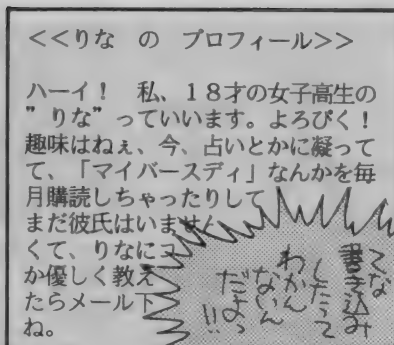 <<りな の プロフィール>>
ハーイ! 私、18才の女子高生の
”りな”っていいます。よろぴく!
趣味はねぇ、今、占いとかに凝って
て、「マイバースディ」なんかを毎
月購読しちゃったりして
まだ彼氏はいません
くて、りなにコ
か優しく教え
たらメール下
ね。
てな
書き込み
したって
わかん
ないん
だよっ
!!